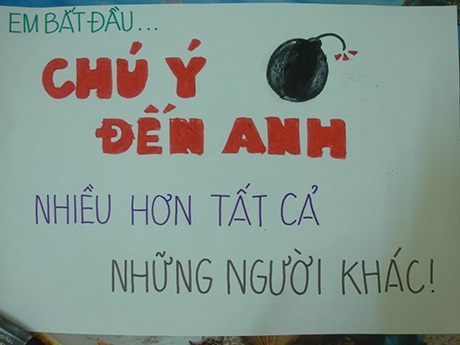 EM BẤT ĐẦU...
CHÚ Ý
ĐẾN ANH
NHIỀU HƠN TẤT CẢ
NHỮNG NGƯỜI KHÁC!